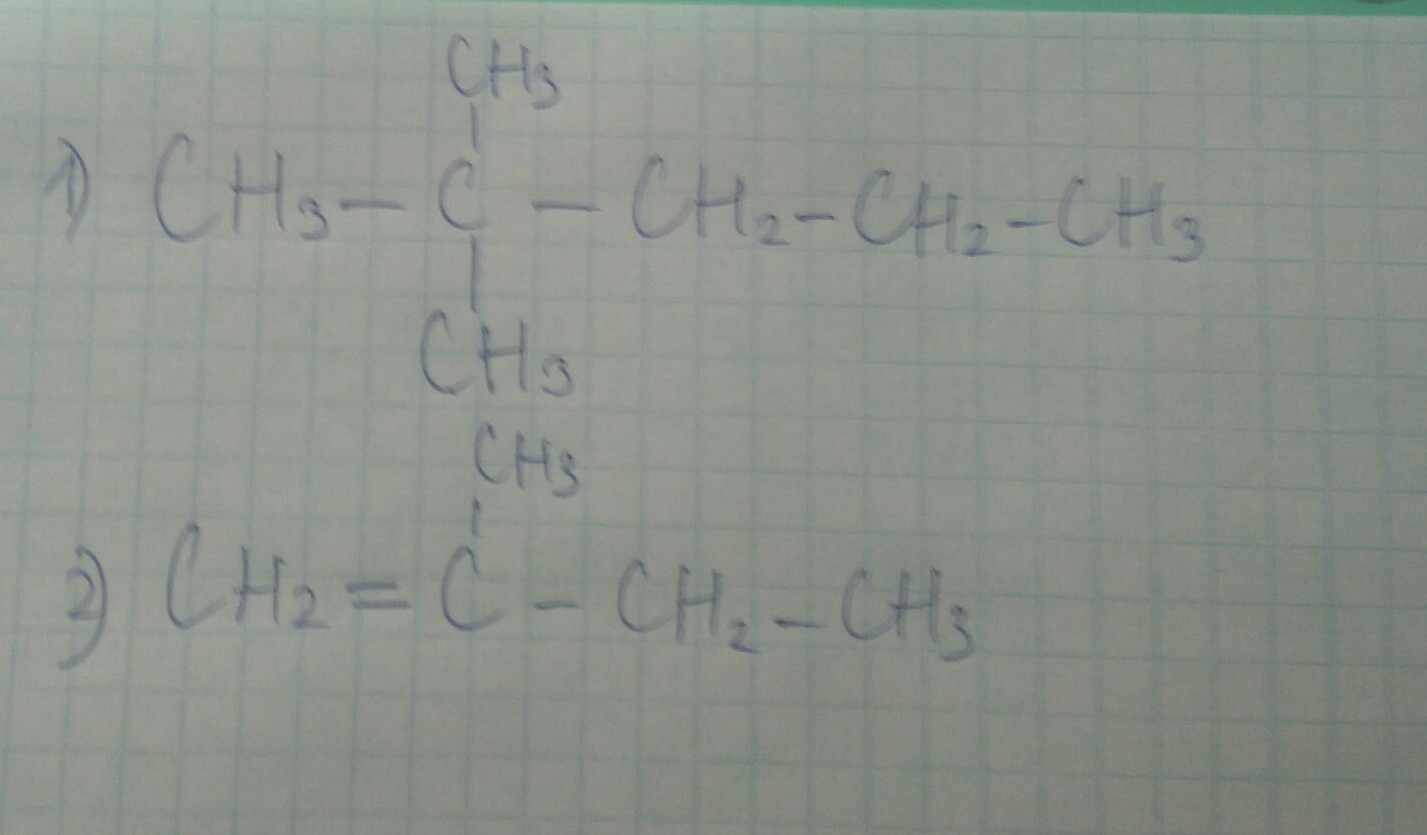 CH3
1) CH3-C-CH2-CH2-CH3
CH3
CH3
2) CH2=C-CH2-CH3